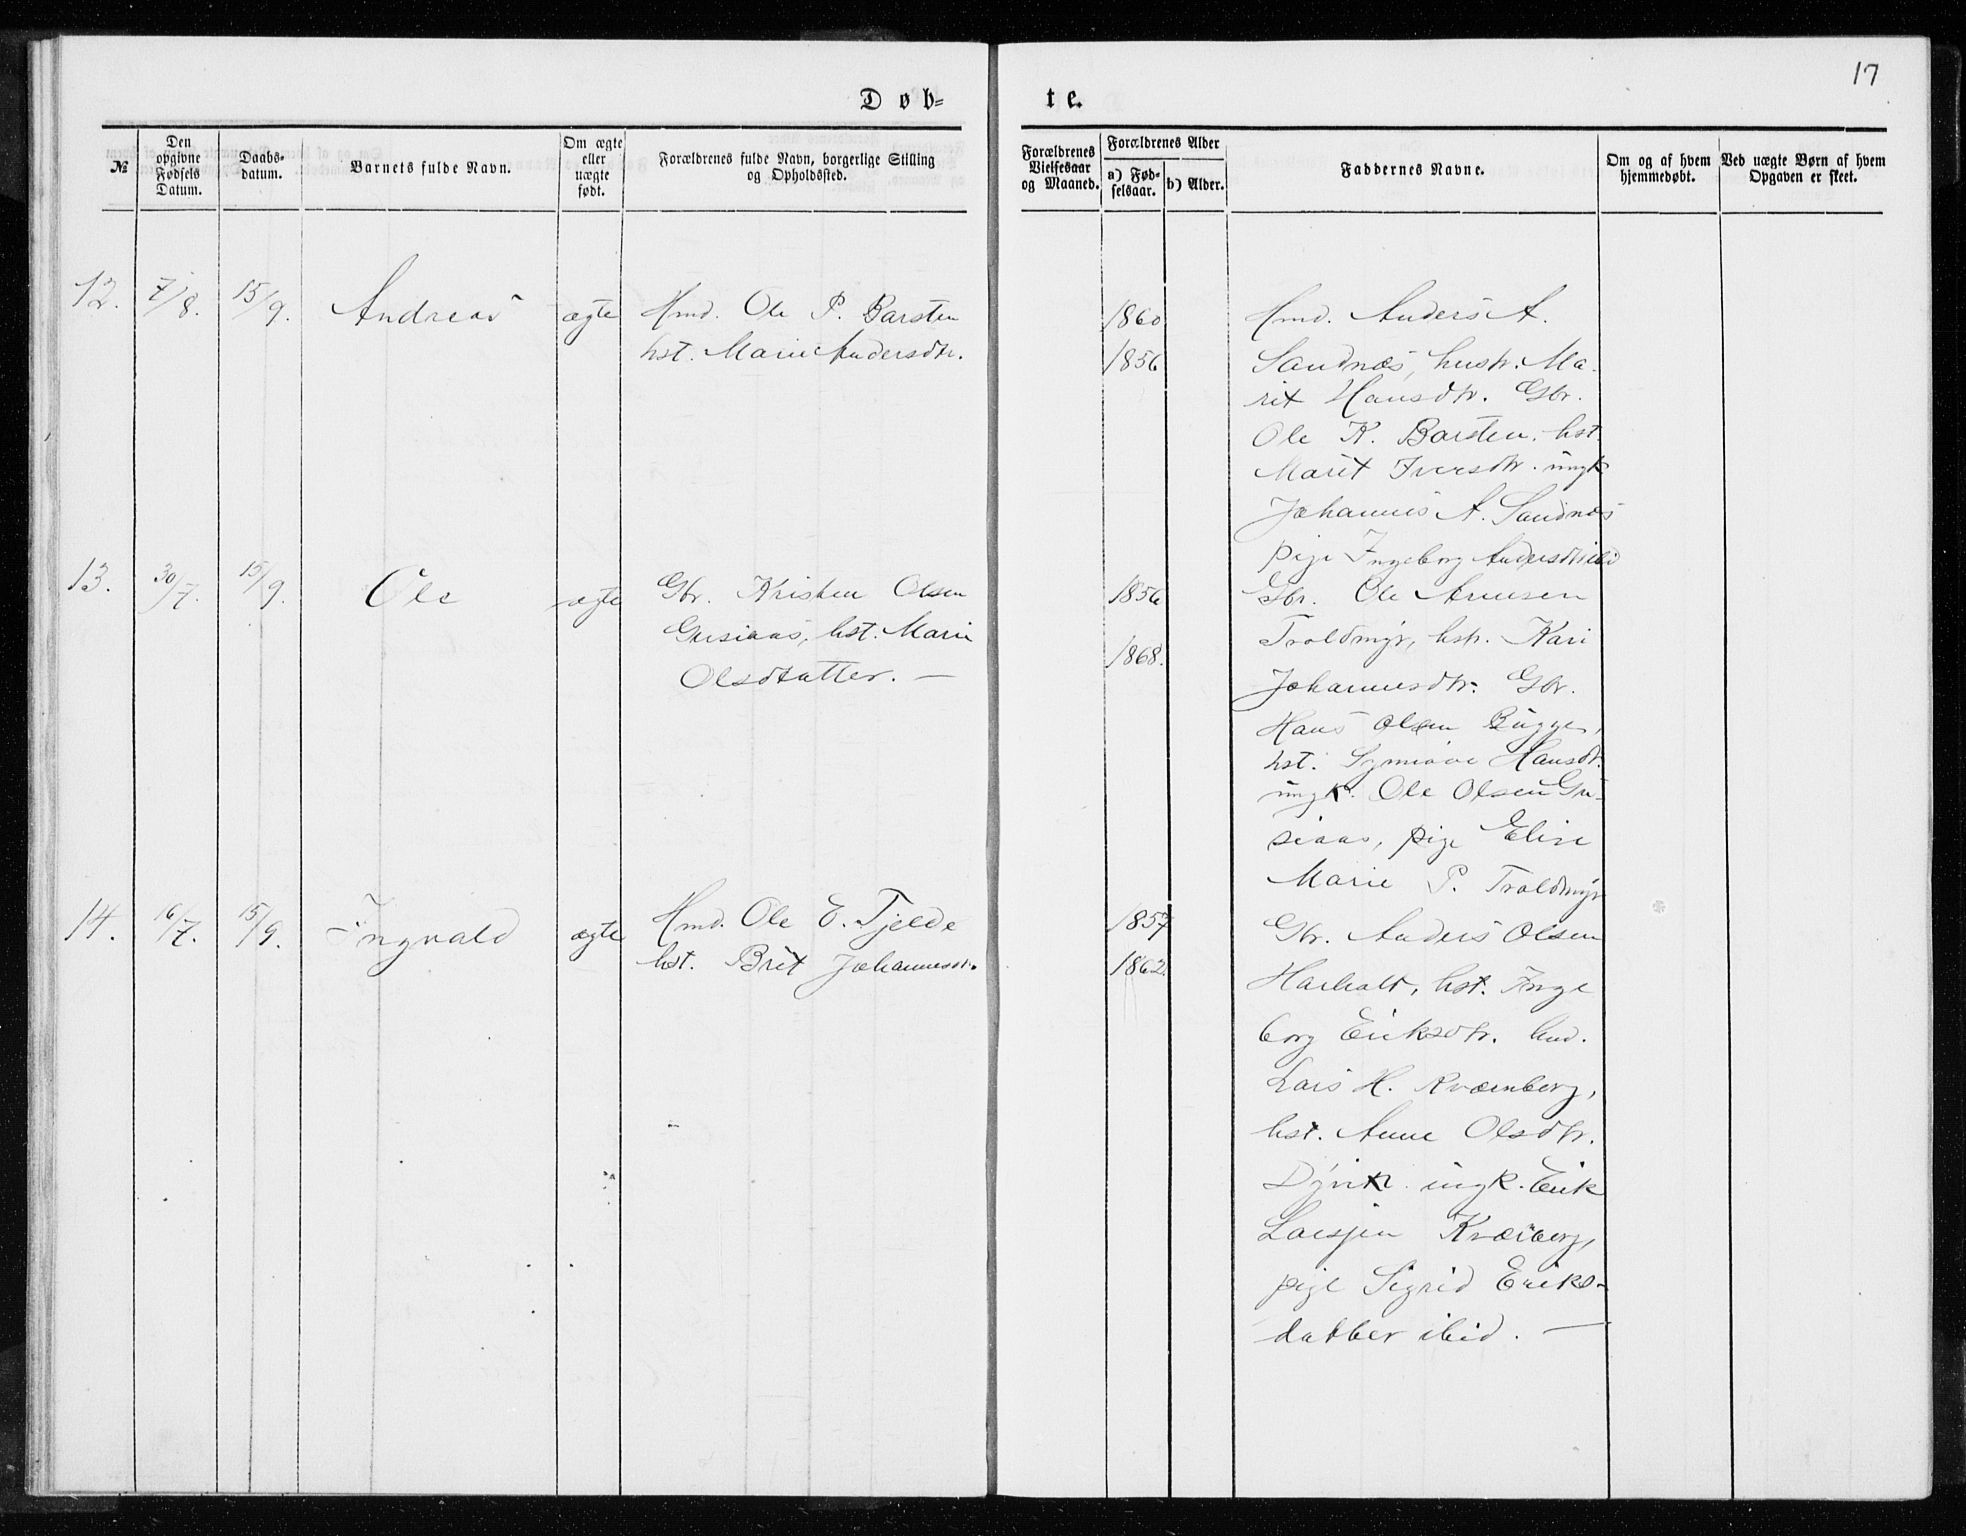 17
Døb-
te.
№
Den opgivne Fødsels Datum.
Daabs-datum.
Barnets fulde Navn.
Om ægte eller uægte født.
Forældrenes fulde Navn, borgerlige Stilling og Opholdssted.
Forældrenes Vielsesaar og Maaned.
Forældrenes Alder
a) Fød-selsaar.
b) Alder.
Faddernes Navne.
Om og af hvem hjemmedøbt.
Ved uægte Børn af hvem Opgaven er skeet.
12.
7/8.
15/9.
Andreas
ægte
Hmd. Ole P. Barsten
hst. Marie Andersdtr.
1860
1856
Hmd. Anders A.
Sandnæs, hustr. Ma-
rit Hansdtr. Gbr.
Ole K. Barsten, hst.
Marit Iversdtr. ungk.
Johannes A. Sandnæs
pige Ingeborg Andersdtr ibid
13.
30/7.
15/9.
Ole
ægte
Gbr. Kristen Olsen
Gusiaas, hst. Marie
Olsdtatter. —
1856
1868.
Gbr. Ole Arnesen
Troldmyr, hstr. Kari
Johannesdtr. Gbr.
Hans Olsen Bugge,
hst. Synnøve Hansdtr.
ungk. Ole Olsen Gu-
siaas, pige Eline
Marie P. Troldmyr
14.
16/7.
15/9.
Ingvald
ægte
Hmd. Ole E. Tjelde
hst. Brit Johannesdtr.
1857
1862.
Gbr. Anders Olsen
hst. Inge
borg Eriksdtr. hmd.
Lars H. Kværnberg,
hst. Anne Olsdtr.
Dyvik ungk. Erik
Larsjen Kværberg,
pige Sigrid Eriks-
datter ibid. —